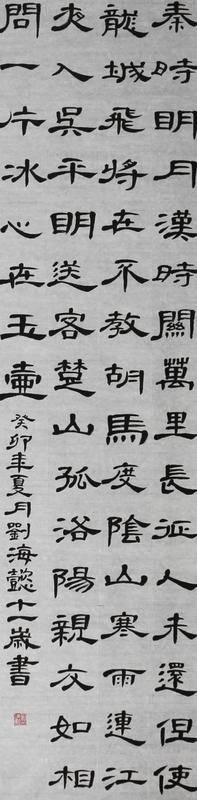 秦時明月漢時關萬里長征人未還但使
龍城飛將在不教胡馬度陰山寒雨連江
夜入吳平明送客楚山孤洛陽親友如相
問一片冰心在玉壺
癸卯年夏月劉海懿十一歲書